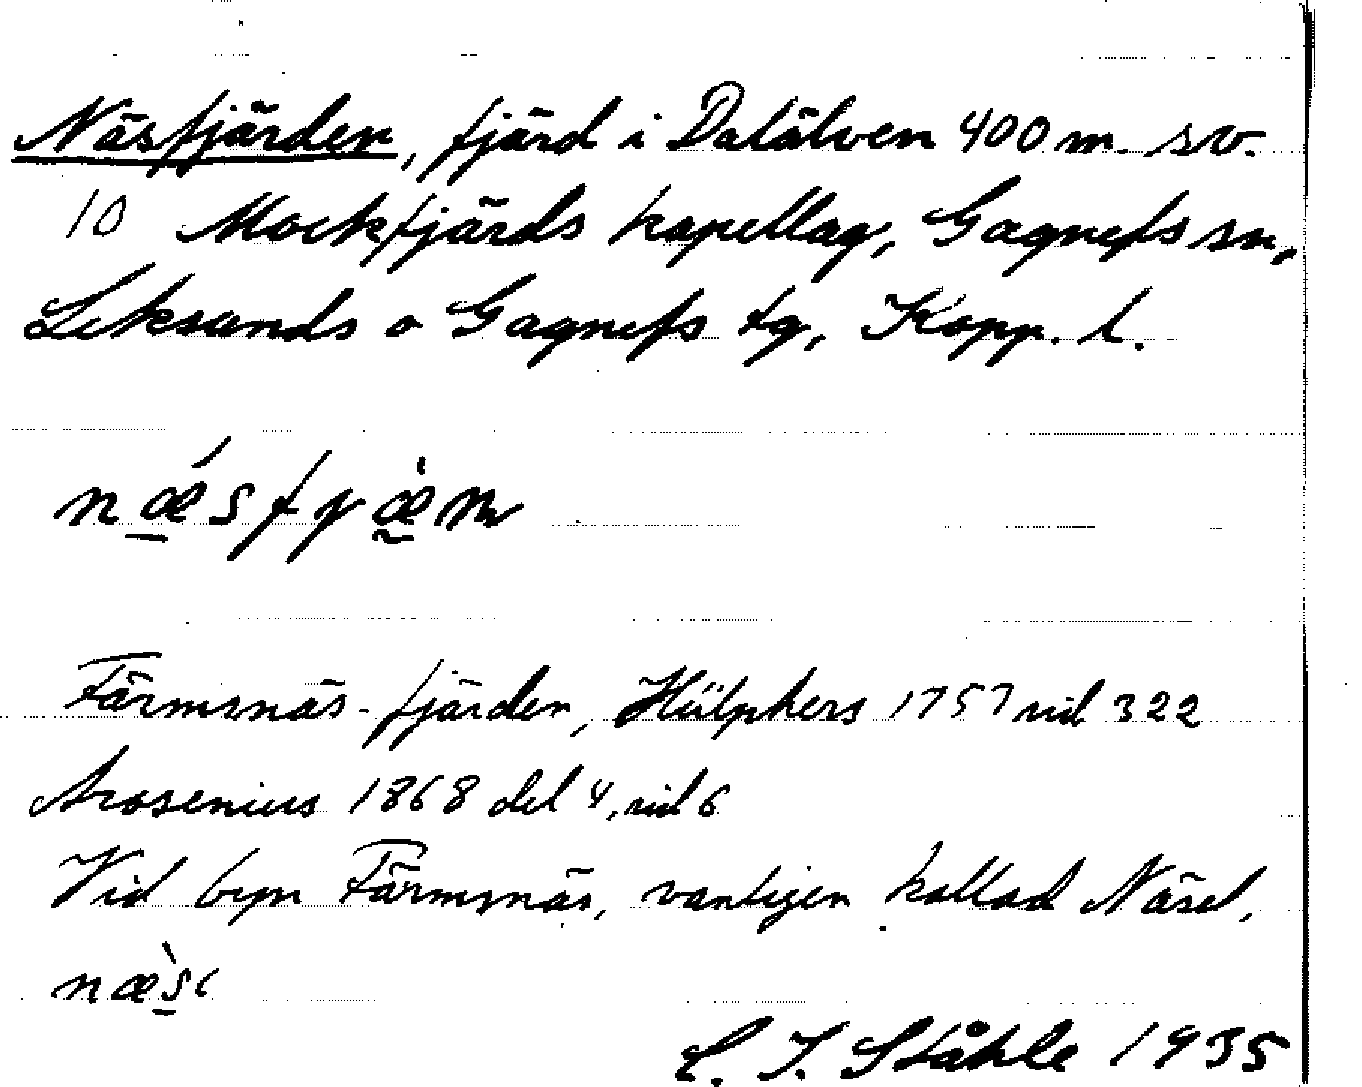 Näsfjärden, fjärd i Dalälven 400 m. sv.
10 Mockfjärds kapellag, Gagnefs sn,
Leksands o Gagnefs tg, Kopp. l.
nǽsfjæ̀rn
Färmsnäs-fjärden, Hülphers 1757 sid 322
Arosenius 1868 del 4, sid 6
Vid byn Färmsnäs, vanligen kallad Näset,
næ̀sɩ
C. I. Ståhle 1935